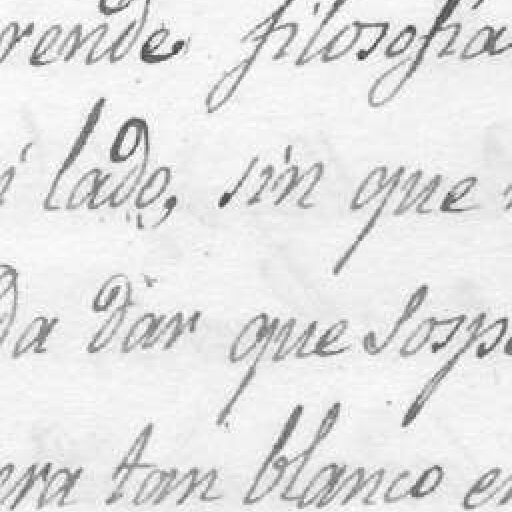 rende filosofia
i lado, sin que
da dar que Sosp
era tan blanco en